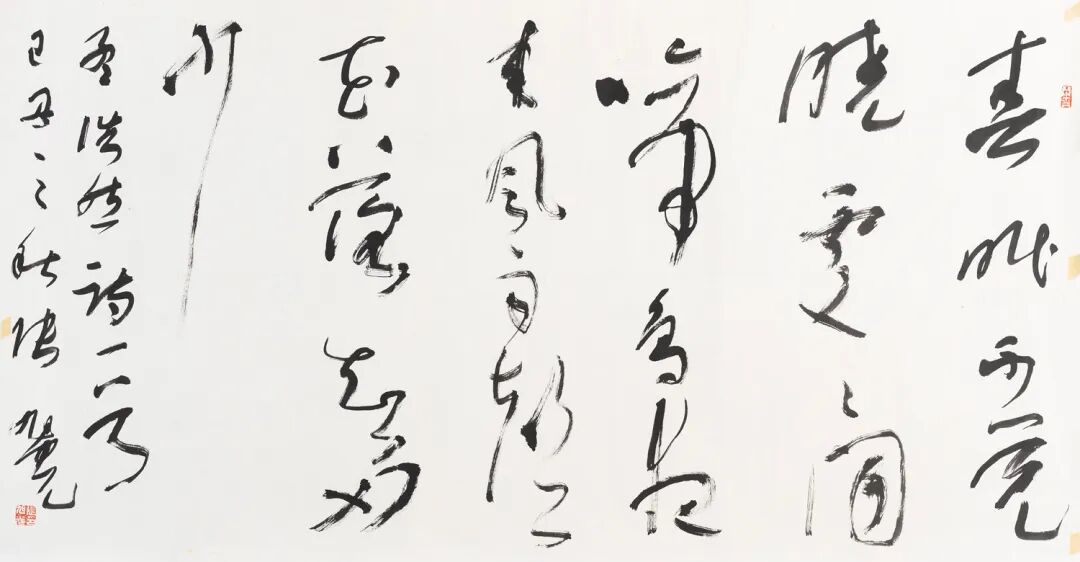 春眠不覺
曉處々聞
啼鳥夜
來風雨聲
花落知多
少
孟浩然詩一首
己丑之秋張旭光